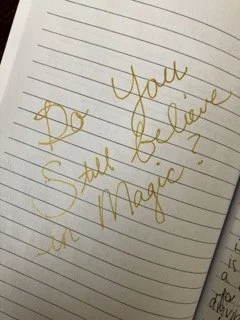 Do You
Still believe
in Magic?
is
a